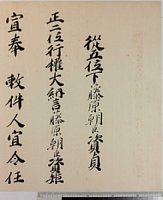 從五位下藤原朝臣資貞
正二位行權大納言藤原朝臣資矩
宣奉　敕件人宜令任